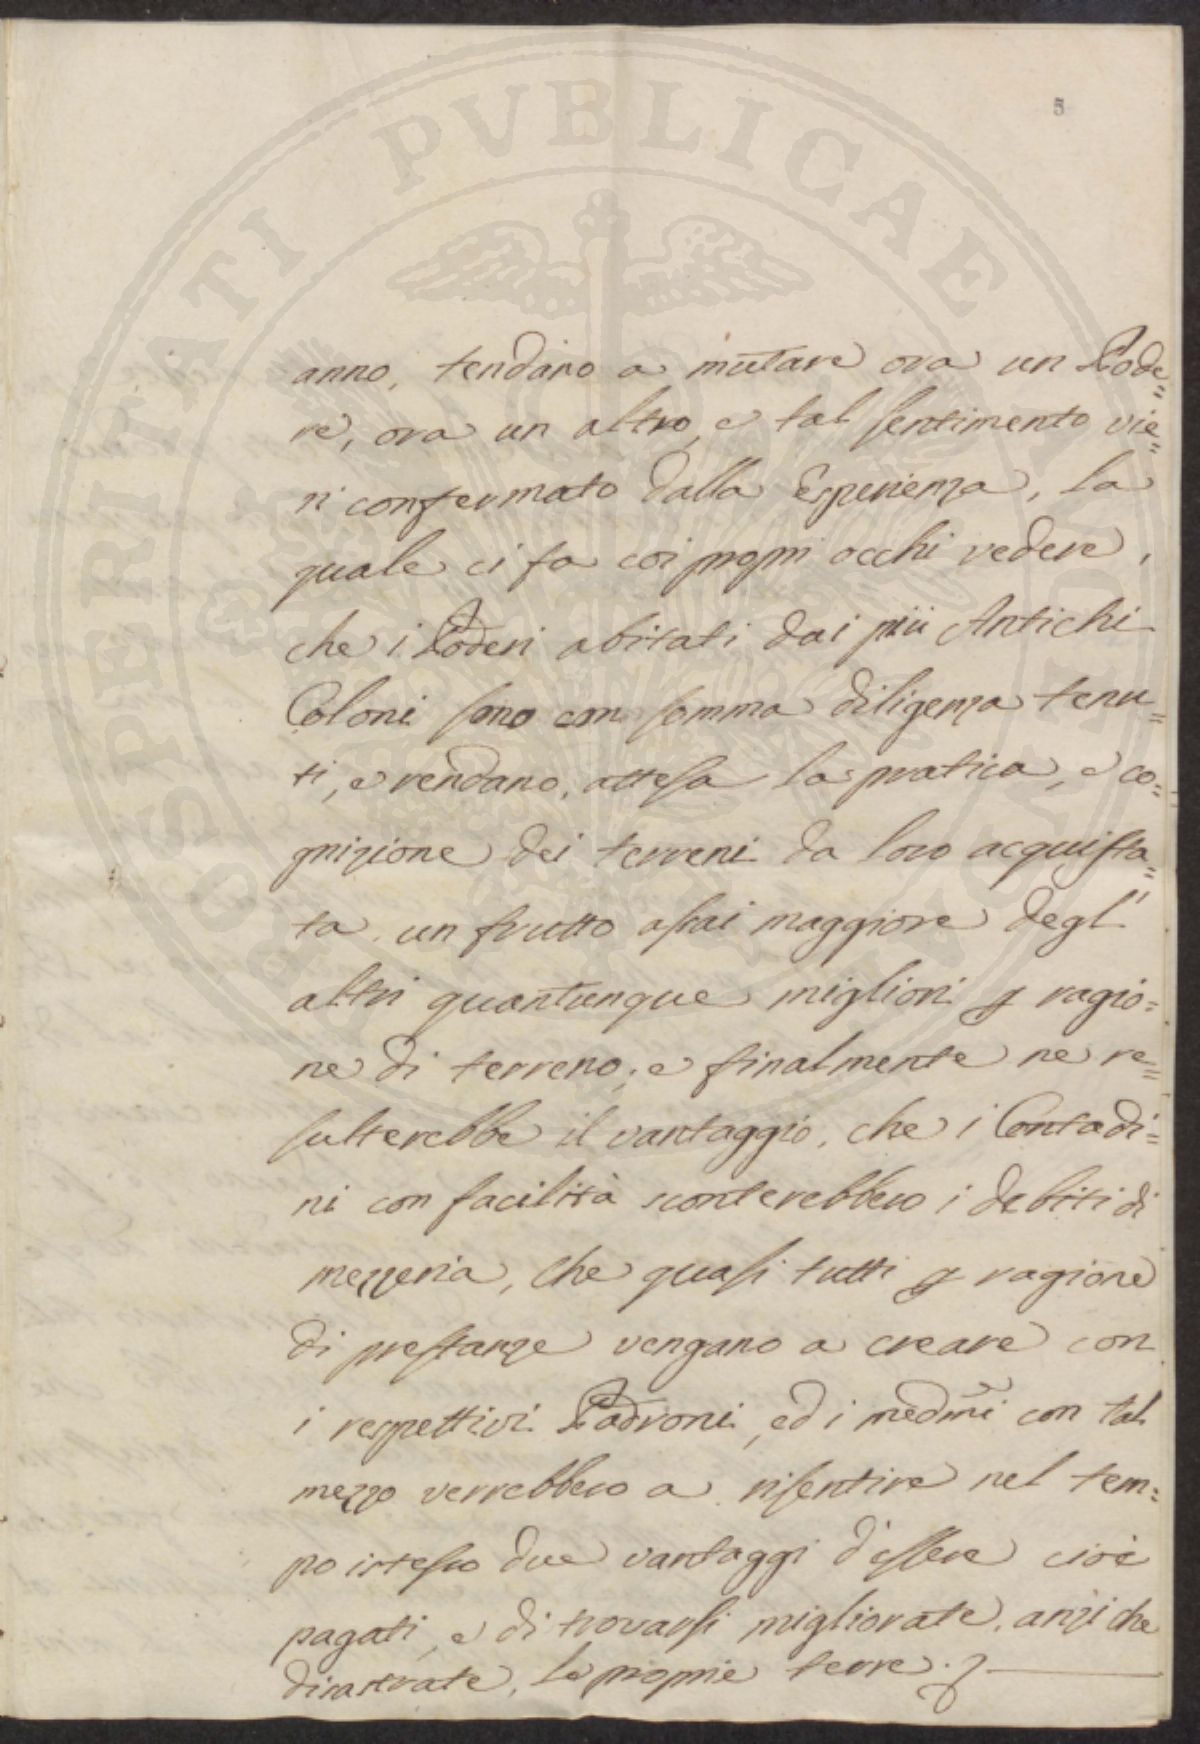 PROSPERITATI PUBLICAE AUGENDAE
5
anno, tendano a mutare ora un Pode=
re, ora un altro, e tal sentimento vie=
ni confermato dalla Esperienza, la
quale ci fa coi propri occhi vedere,
che i Poderi abitati dai più Antichi
Coloni sono con somma diligenza tenu=
ti, e rendano, attesa la pratica, e co=
gnizione dei terreni da loro acquista=
ta, un frutto assai maggiore degl'
altri quantunque migliori p ragio=
ne di terreno; e finalmente ne re=
sulterebbe il vantaggio, che i Contadi=
ni con facilità sconterebbero i debiti di
mezzeria, che quasi tutti p ragione
di prestanze vengano a creare con
i respettivi Padroni, ed i medmi con tal
mezzo verrebbero a risentire nel tem=
po istesso due vantaggi d'essere cioè
pagati, e di trovarsi migliorate, anzi che
disastrate, le proprie terre.